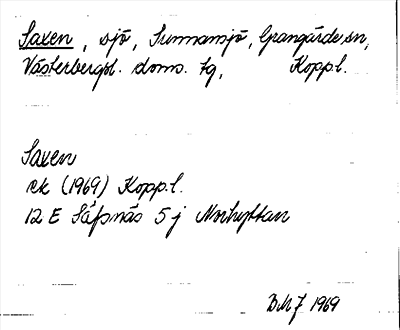 Saxen, sjö, Sunnansjö, Grangärde sn,
Västerbergsl. doms. tg, Kopp.l.
Saxen
rk (1969) Kopp.l.
12 E Säfsnäs 5 j Norhyttan
BMJ 1969